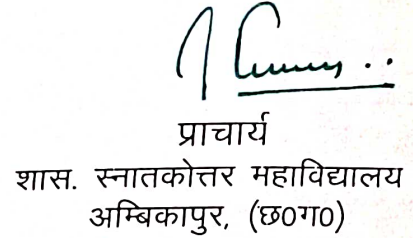 प्राचार्य
शास. स्नातकोत्तर महाविद्यालय
अम्बिकापुर, (छ0ग0)